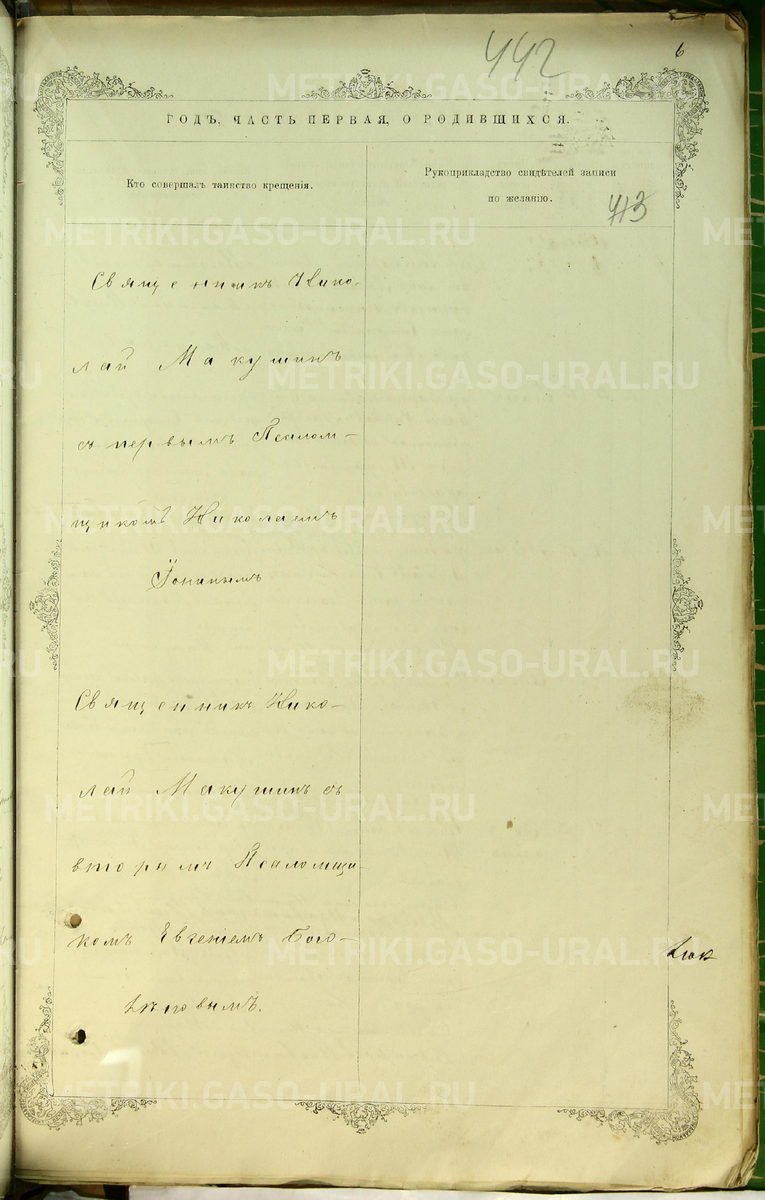 442
6
ГОДЪ, ЧАСТЬ ПЕРВАЯ, О РОДИВШИХСЯ.
Кто совершалъ таинство крещенія.
Рукоприкладство свидѣтелей записи
по желанію.
413
Священникъ Нико-
лай Макушинъ
съ первымъ Псалом-
щикомъ Николаемъ
Іонинымъ
Священникъ Нико-
лай Макушинъ съ
вторымъ Псаломщи-
комъ Евгеніемъ Бого-
METRIKI.GASO-URAL.RU